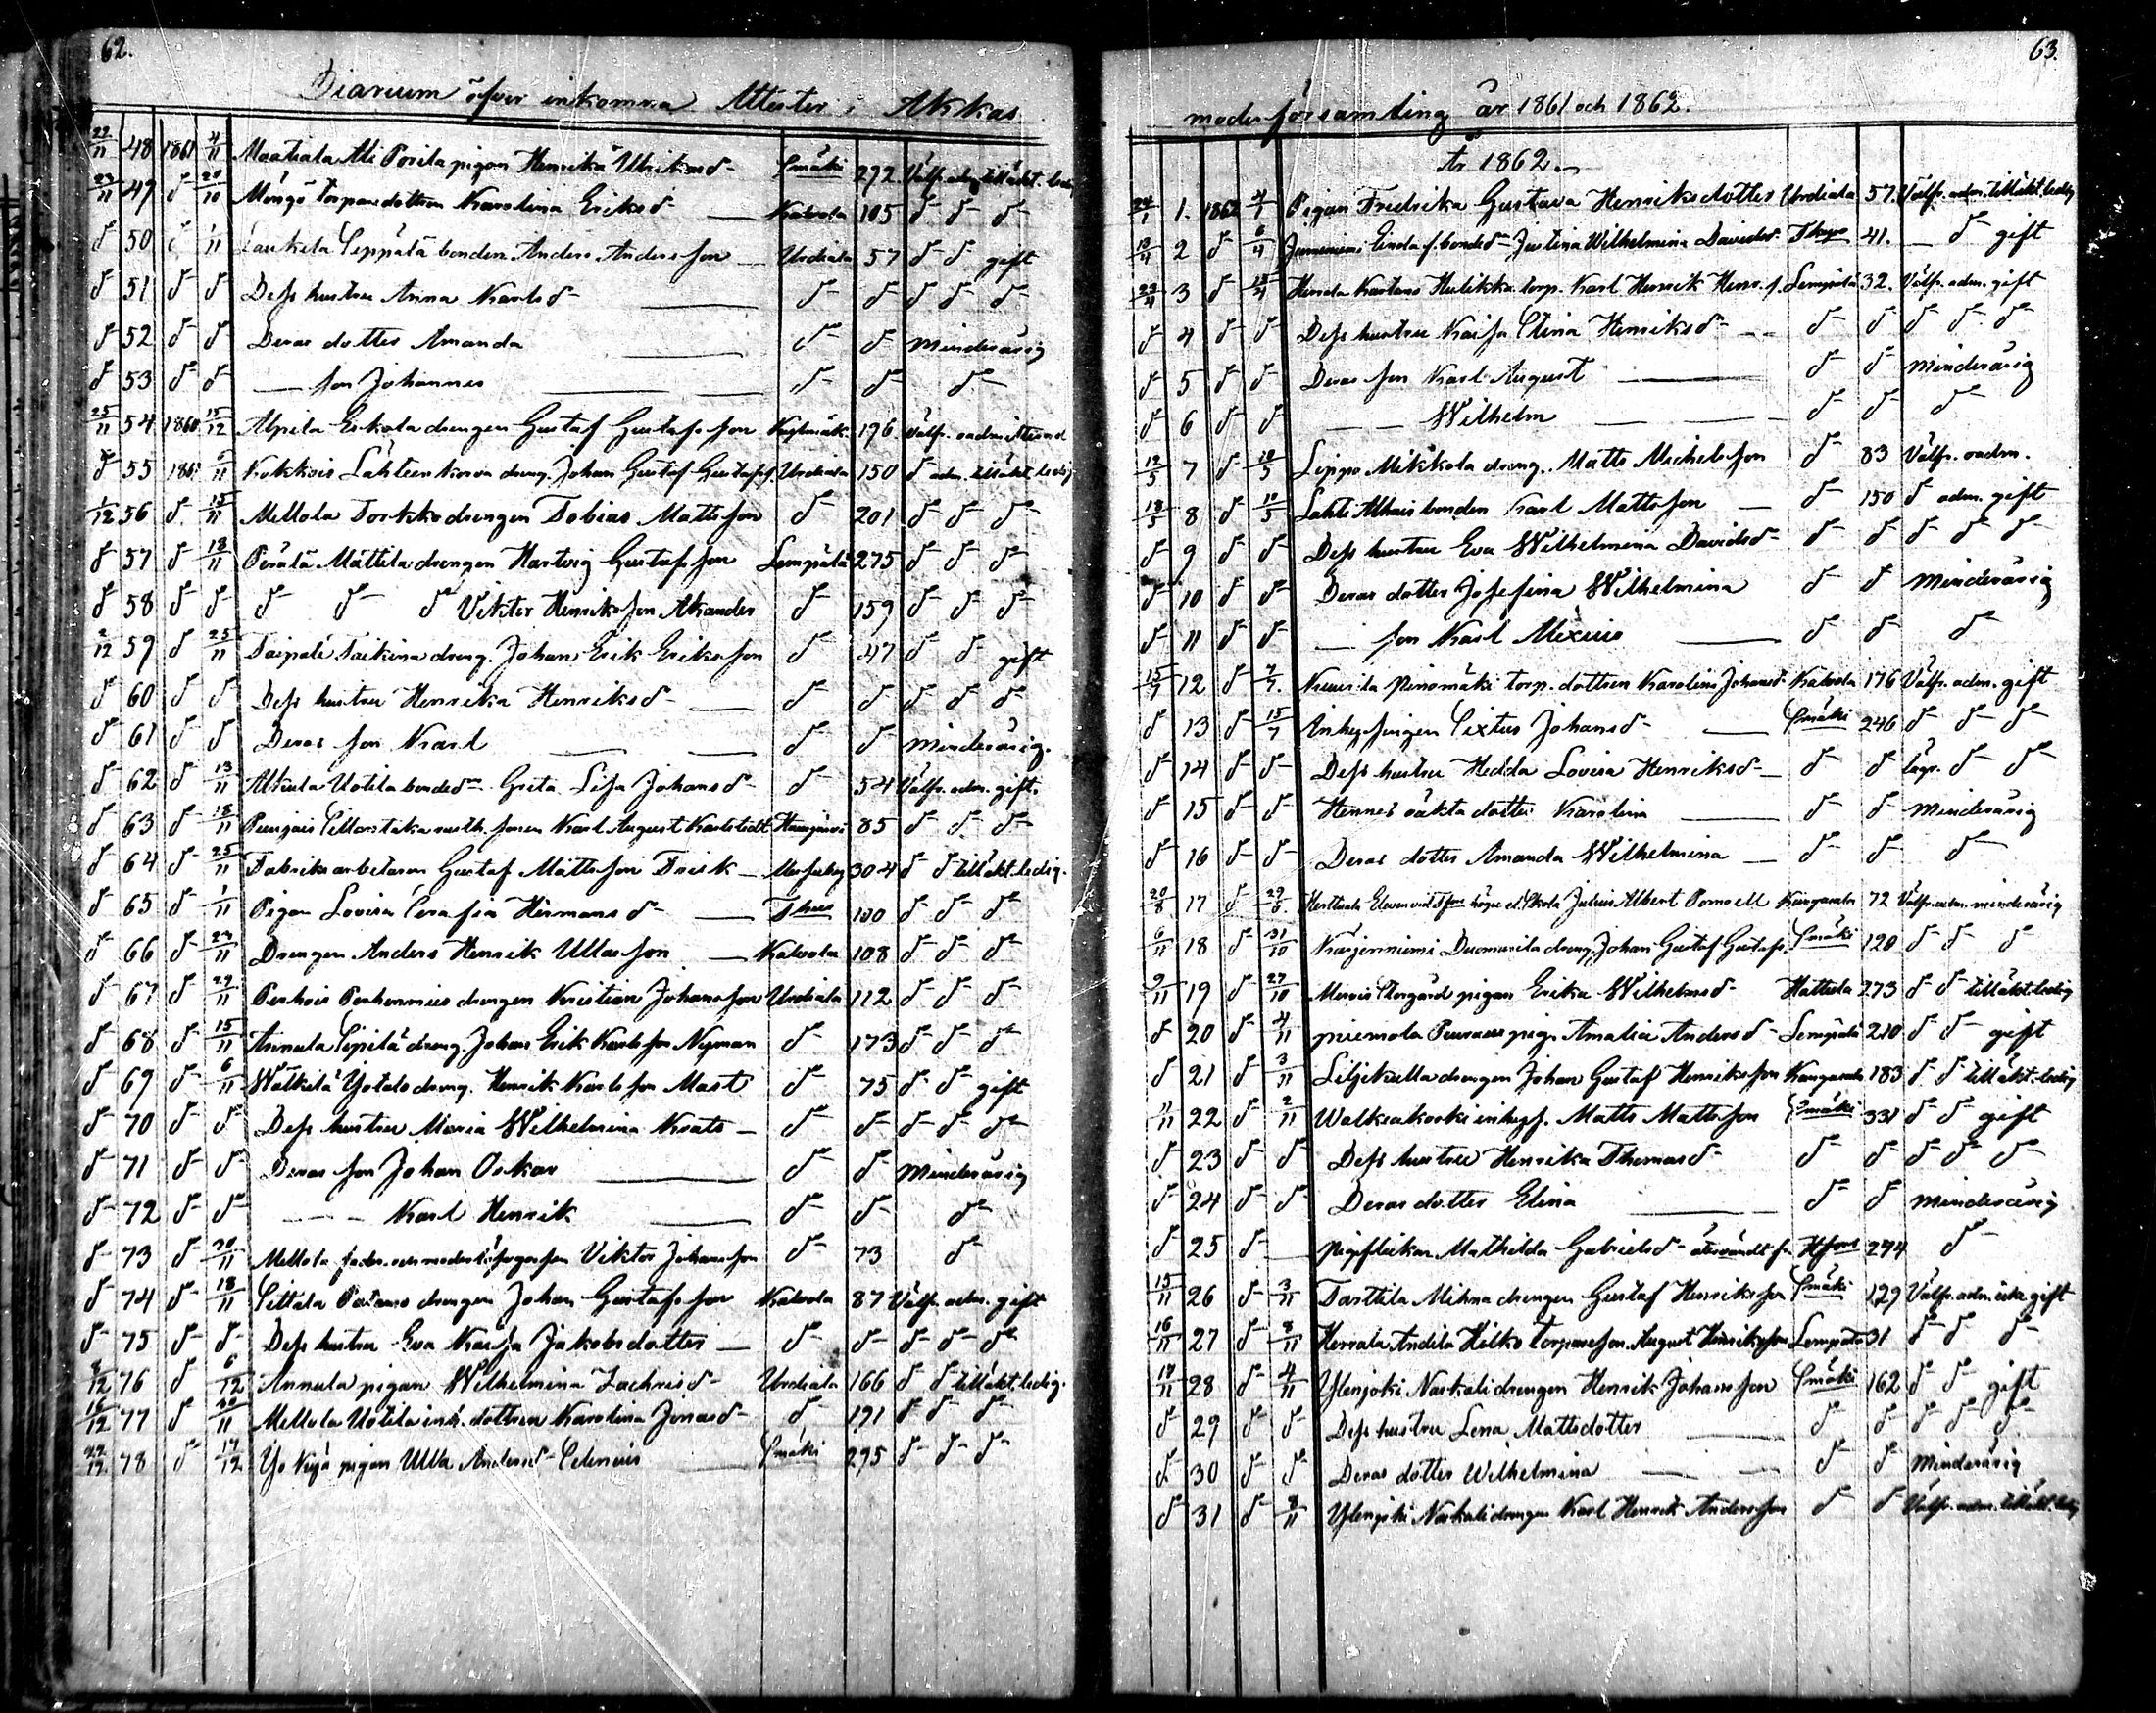 62.
Diarium öfver inkomna Attester i Akkas
22/11 48 1861 4/11 Maatiala Ali Porila pigan Henrika Ulrikasd:r Smäki 272 Välfr. adm. tillåkt. ledig
23/11 49 d:o 20/10 torparedottren Karolina Eriksd:r — Kalvola 105 d:o d:o d:o
d:o 50 d:o 1/11 Laukela Seppälä bonden Anders Andersson — Urdiala 57 d:o d:o gift
d:o 51 d:o d:o Dess hustru Anna Karlsd:r — d:o d:o d:o d:o
d:o 52 d:o d:o Deras dotter Amanda — d:o d:o minderårig
d:o 53 d:o d:o — son Johannes — d:o d:o d:o
25/11 54 1860 15/12 Alpila Erkola drengen Gustaf Gustafsson 196 Välfr. oadmitterad
d:o 55 1861 Kokkois Lahteenkorva dreng. Johan Gustaf Gustafss. Urdiala 150 d:o adm. tillåkt. ledig
1/12 56 d:o 15/11 Mellola Torkko drengen Tobias Mattsson d:o 201 d:o d:o d:o
d:o 57 d:o 18/11 Perälä Mattila drengen Hartvig Gustafsson Lempälä 275 d:o d:o d:o
d:o 58 d:o d:o d:o d:o d:o Viktor Henriksson Akander d:o 159 d:o d:o d:o
2/12 59 d:o 25/11 Taipale Taikina dreng. Johan Erik Eriksson d:o 47 d:o d:o gift
d:o 60 d:o d:o Dess hustru Henrika Henriksd:r — d:o d:o d:o d:o d:o
d:o 61 d:o d:o Deras son Karl — — d:o d:o minderårig.
d:o 62 d:o 13/11 Uotila bonded:r Greta Lisa Johansd:r d:o 54 Välfr. adm. gift.
d:o 63 d:o 18/11 sonen Karl August Karlstedt 85 d:o d:o d:o
d:o 64 d:o 25/11 Fabriksarbetaren Gustaf Mattsson Frisk — 304 d:o d:o tillåkt. ledig.
d:o 65 d:o 1/11 Pigan Lovisa Serafia Hermansd:r — Thus 100 d:o d:o d:o
d:o 66 d:o 23/11 Drengen Anders Henrik Ullasson — Kalvola 108 d:o d:o d:o
d:o 67 d:o 29/11 Perhois Perhonmies drengen Kristian Johansson Urdiala 112 d:o d:o d:o
d:o 68 d:o 15/11 Annula Sipilä dreng. Johan Erik Karlsson Nyman d:o 173 d:o d:o d:o
d:o 69 d:o 6/11 Wälkilä Yotalo dreng. Henrik Karlsson Mast d:o 75 d:o d:o gift
d:o 70 d:o d:o Dess hustru Maria Wilhelmina Krats — d:o d:o d:o d:o
d:o 71 d:o d:o Deras son Johan Oskar — d:o d:o minderårig
d:o 72 d:o d:o — — Karl Henrik — d:o d:o d:o
d:o 73 d:o 20/11 Mellola fader- och moderlösa Viktor Johansson d:o 73 d:o
d:o 74 d:o 18/11 Sittala drengen Johan Gustafsson Kalvola 87 Välfr. adm. gift
d:o 75 d:o d:o Dess hustru Eva Kaisa Jakobsdotter — d:o d:o d:o d:o d:o
8/12 76 d:o 6/12 Annula pigan Wilhelmina Zachrisd:r Urdiala 166 d:o d:o tillåkt. ledig.
16/12 77 d:o 30/11 Mellola Uotila inh. dottren Karolina Jonasd:r d:o 191 d:o d:o d:o
22/12 78 d:o 17/12 Yo Nyä pigan Ulla Andersd:r Selenius — Smäki 295 d:o d:o d:o
63.
moderförsamling år 1861 och 1862.
År 1862.
24/1 1. 1862 4/1 Pigan Fredrika Gustava Henriksdotter Urdiala 57. Välfr. adm. tillåkt. ledig
13/4 2 d:o 6/4 bonded:r Justina Wilhelmina Davidsd:r 41. — d:o gift
22/4 3 d:o 15/4 Kartano Hulikka torp. Karl Henrik Henr. s. Lempälä 32. Välfr. adm. gift
d:o 4 d:o d:o Dess hustru Kaisa Stina Henriksd:r — d:o d:o d:o d:o d:o
d:o 5 d:o d:o Deras son Karl August — d:o d:o minderårig
d:o 6 d:o d:o — — Wilhelm — d:o d:o d:o
12/5 7 d:o 10/5 Lippo Mikkola dreng. Matts Michelsson d:o 83 Välfr. oadm.
18/5 8 d:o 10/5 Lahti bonden Karl Mattsson — d:o 150 d:o adm. gift
d:o 9 d:o d:o Dess hustru Eva Wilhelmina Davidsd:r d:o d:o d:o d:o d:o
d:o 10 d:o d:o Deras dotter Josefina Wilhelmina d:o d:o minderårig
d:o 11 d:o d:o — son Karl Alexius — d:o d:o d:o
15/7 12 d:o 7/7. Kuurila Ninomäki torp. dottren Karolina Johansd:r Kalvola 176 Välfr. adm. gift
d:o 13 d:o 15/7 Inhysingen Sixtus Johansd:r — Smäki 246 d:o d:o d:o
d:o 14 d:o d:o Dess hustru Hedda Lovisa Henriksd:r — d:o d:o lagr. d:o d:o
d:o 15 d:o d:o Hennes oäkta dotter Karolina — d:o d:o minderårig
d:o 16 d:o d:o Deras dotter Amanda Wilhelmina — d:o d:o d:o
20/8 17 d:o Julius Albert Kangasala 72 minderårig
6/11 18 d:o 31/10 Karjenniemi dreng. Johan Gustaf Gustafs. Smäki 120 d:o d:o d:o
9/11 19 d:o 27/10 Storgård pigan Erika Wilhelmsd:r Hattula 273 d:o d:o tillåkt. ledig
d:o 20 d:o 4/11 pig. Amalia Andersd:r Lempälä 210 d:o d:o gift
d:o 21 d:o 3/11 Liljekulla drengen Johan Gustaf Henriksson Kangasala 183 d:o d:o tillåkt. ledig
11/11 22 d:o 2/11 Walkeakoski inhys. Matts Mattsson Smäki 331 d:o d:o gift
d:o 23 d:o d:o Dess hustru Henrika Thomasd:r d:o d:o d:o d:o d:o
d:o 24 d:o d:o Deras dotter Elina — d:o d:o minderårig
d:o 25 d:o — Pigflickan Mathilda Gabrielsd:r återvändt fr. Hfors 294 d:o
15/11 26 d:o 3/11 Tarttila Mikna drengen Gustaf Henriksson Smäki 129 Välfr. adm. icke gift
16/11 27 d:o 8/11 Hervala Andila Hilko torpareson August Henriksson Lempälä 31 d:o d:o d:o
19/11 28 d:o 4/11 Ylenjoki Naskali drengen Henrik Johansson Smäki 162 d:o d:o gift
d:o 29 d:o d:o Dess hustru Lena Mattsdotter — d:o d:o d:o d:o d:o
d:o 30 d:o d:o Deras dotter Wilhelmina — — d:o d:o minderårig
d:o 31 d:o 8/11 Ylenjoki Naskali drengen Karl Henrik Andersson d:o d:o Välfr. adm. tillåkt. ledig